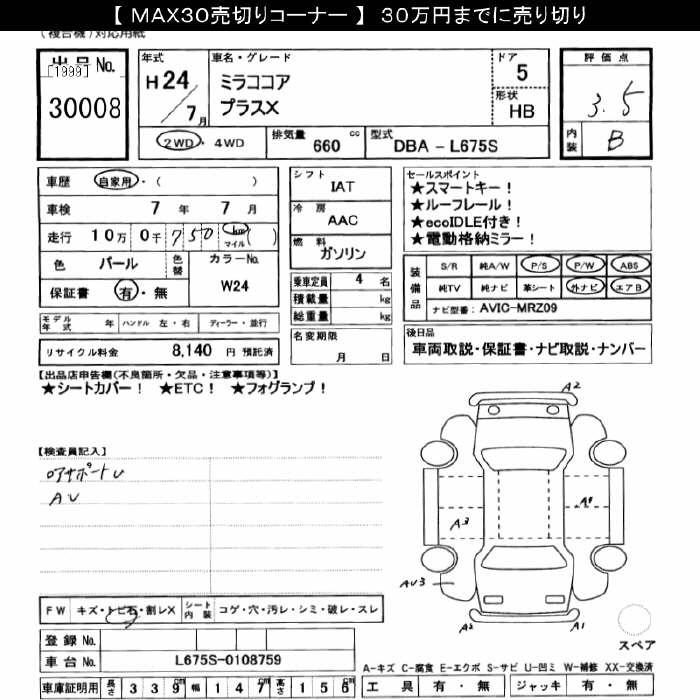 【 MAX30売切りコーナー 】 30万円までに売り切り
(複合機)対応用紙
出品No.
[1999]
30008
年式
H24/7月
車名・グレード
ミラココア
プラスX
ドア
5
形状
HB
2WD・4WD
排気量 660 cc
型式 DBA - L675S
評価点
3.5
内装 B
車歴 自家用・( )
車検 7年 7月
走行 10万0千750 km マイル( )
色 パール
色替
カラーNo.
W24
保証書 有・無
シフト
IAT
冷房
AAC
燃料
ガソリン
乗車定員 4 名
積載量 kg
総重量 kg
名変期限
月 日
セールスポイント
★スマートキー!
★ルーフレール!
★ecoIDLE付き!
★電動格納ミラー!
装備品
S/R 純A/W P/S P/W ABS
純TV 純ナビ 革シート 外ナビ エアB
ナビ型番: AVIC-MRZ09
モデル年式 年 ハンドル 左・右 ディーラー・並行
リサイクル料金 8,140 円 預託済
後日品
車両取説・保証書・ナビ取説・ナンバー
【出品店申告欄(不良箇所・欠品・注意事項等)】
★シートカバー! ★ETC! ★フォグランプ!
【検査員記入】
コアサポートU
AU
A2
A3
A1
AU3
A2
A1
スペア
FW キズ・トビ石・割レX シート内装 コゲ・穴・汚レ・シミ・破レ・スレ
登録No.
車台No. L675S-0108759
A-キズ C-腐食 E-エクボ S-サビ U-凹ミ W-補修 XX-交換済
車庫証明用 長さ 339cm 幅 147cm 高さ 156cm
工具 有・無 ジャッキ 有・無